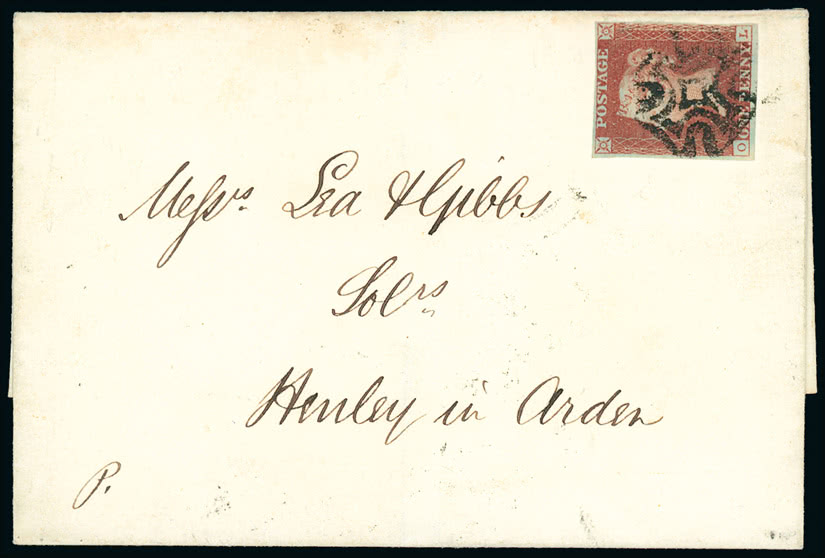 POSTAGE
ONE PENNY
O L
Messrs. Lea & Gibbs
Solrs
Henley in Arden
P.